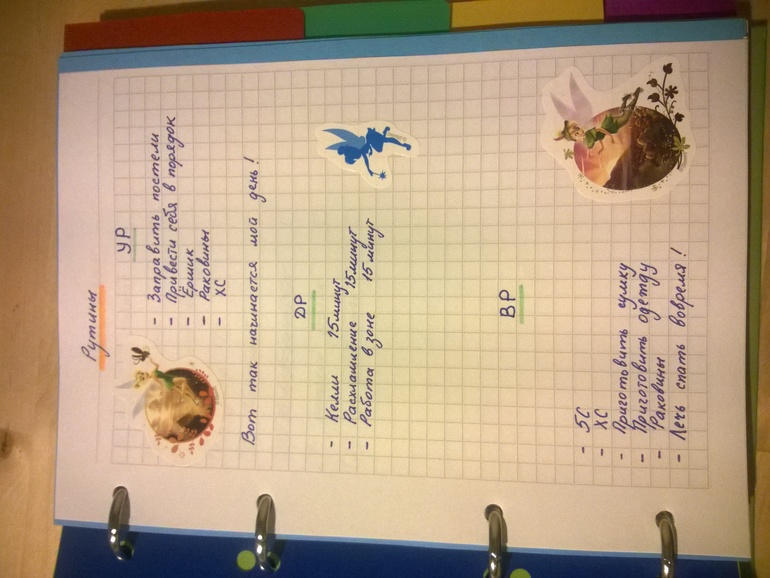 Рутины
УР
- Заправить постели
- Привести себя в порядок
- Ёршик
- Раковины
- ХС
Вот так начинается мой день!
ДР
- Келли 15минут
- Расхламление 15минут
- Работа в зоне 15 минут
ВР
- 5С
- ХС
- Приготовить сумку
- Приготовить одежду
- Раковины
- Лечь спать вовремя!